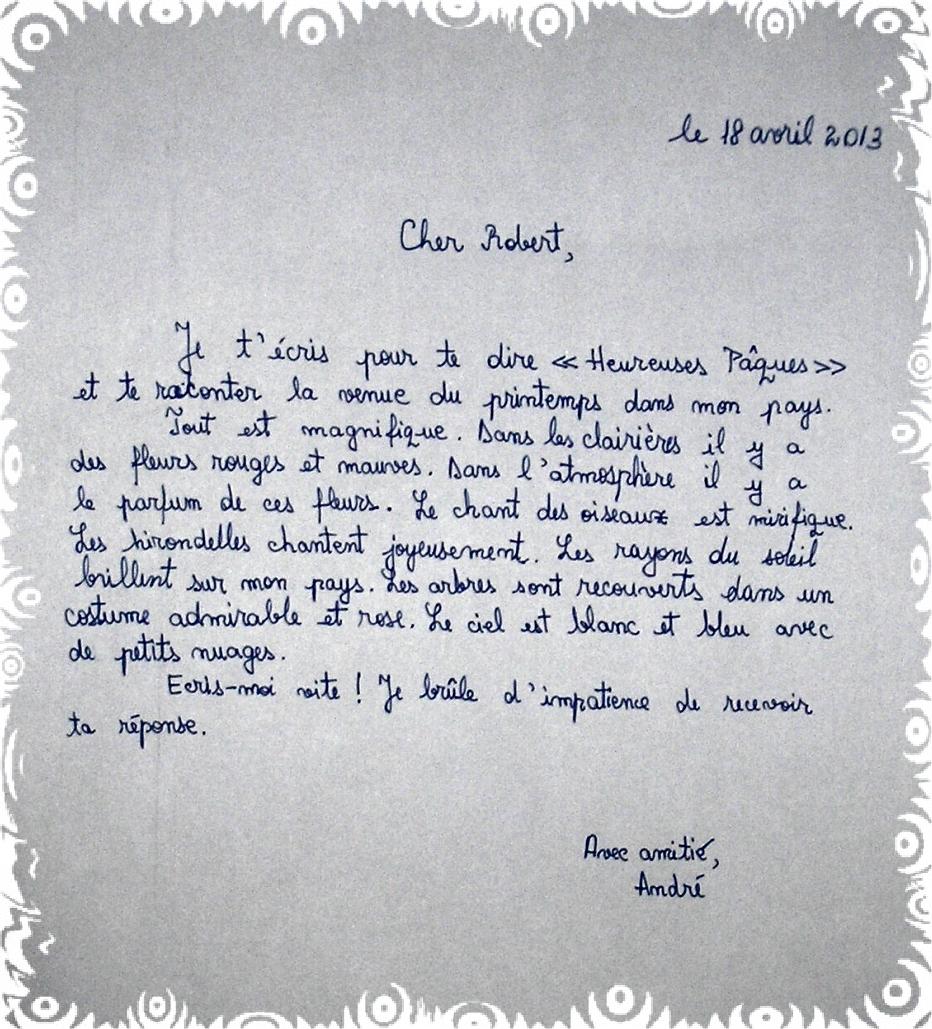 le 18 avril 2013
Cher Robert,
Je t'écris pour te dire << Heureuses Pâques >>
et te raconter la venue du printemps dans mon pays.
Tout est magnifique. Dans les clairières il y a
des fleurs rouges et mauves. Dans l'atmosphère il y a
le parfum de ces fleurs. Le chant des oiseaux est mirifique.
Les hirondelles chantent joyeusement. Les rayons du soleil
brillent sur mon pays. Les arbres sont recouverts dans un
costume admirable et rose. Le ciel est blanc et bleu avec
de petits nuages.
Ecris-moi vite ! Je brûle d'impatience de recevoir
ta réponse.
Avec amitié,
André